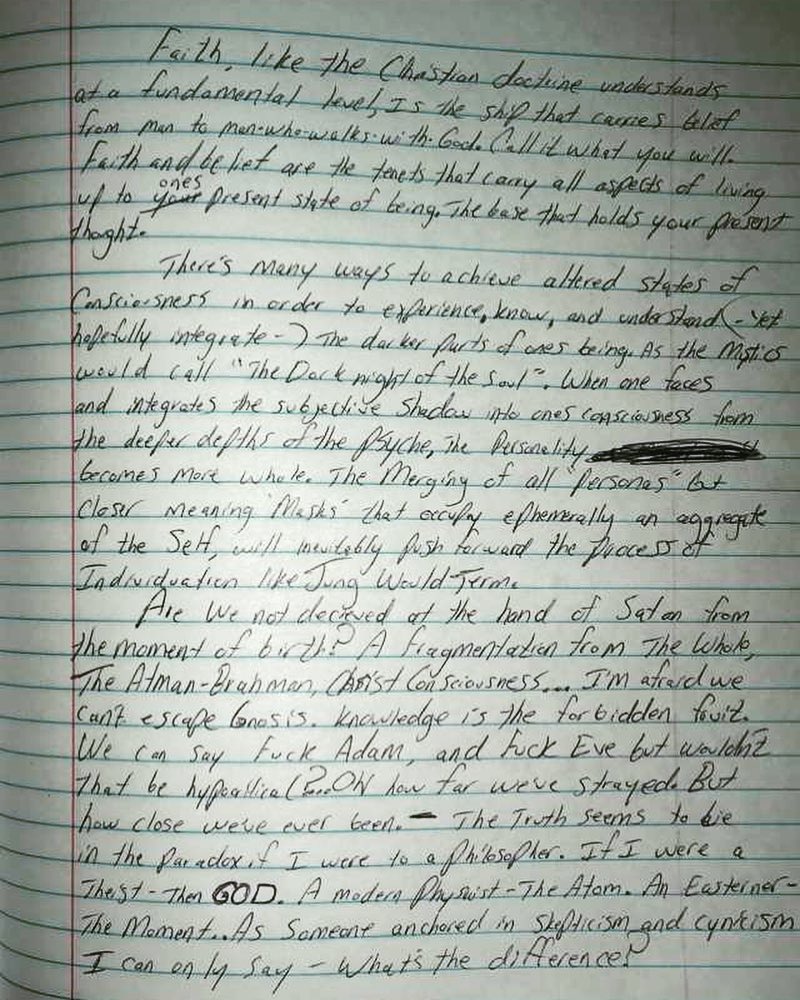 Faith, like the Christian doctrine understands
at a fundamental level, Is the ship that carries belief
from man to man-who-walks-with-God. Call it what you will.
Faith and belief are the tenets that carry all aspects of living
up to ones present state of being. The base that holds your present
thoght.
There's many ways to achieve altered states of
Consciousness in order to experience, know, and understand (-Yet
hopefully integrate-) The darker parts of ones being. As the Mystics
would call "The Dark night of the soul". When one faces
and integrates the subjective shadow into ones consciousness from
the deeper depths of the psyche, The Personality
becomes more whole. The Merging of all "personas" but
closer meaning 'Masks' that occupy ephemerally an aggregate
of the Self, will inevitably push forward the process of
Individuation like Jung Would Term.
Are we not decieved at the hand of Satan from
the moment of birth? A fragmentation from The Whole,
The Atman-Brahman, Christ Consciousness... I'm afraid we
can't escape Gnosis. Knowledge is the forbidden fruit.
We can say Fuck Adam, and Fuck Eve but wouldn't
that be hypocritical?...Oh how far we've strayed. But
how close we've ever been. - The Truth seems to lie
in the paradox if I were to a philosopher. If I were a
Theist - Then GOD. A modern Physicist - The Atom. An Easterner -
The Moment.. As Someone anchored in skepticism and cynicism
I can only say - What's the difference?